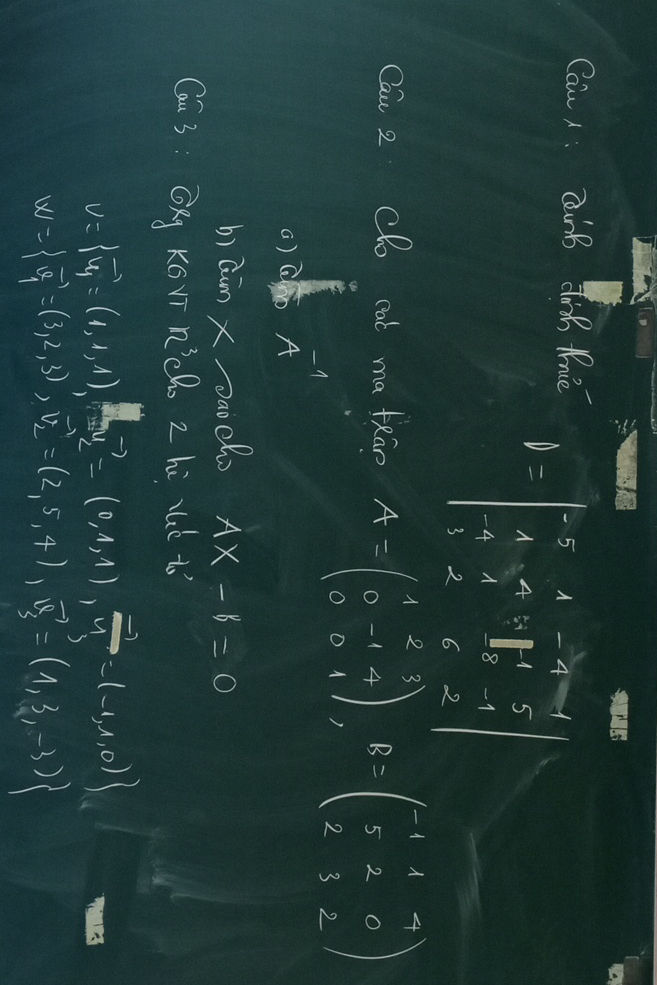 Câu 1: Tính định thức
D = | -5 1 -4 1 |
| 1 4 -1 5 |
| -4 1 -8 -1 |
| 3 2 6 2 |
Câu 2: Cho các ma trận A = ( 1 2 3 ), B = ( -1 1 4 )
( 0 -1 4 ) ( 5 2 0 )
( 0 0 1 ) ( 2 3 2 )
a) Tìm A⁻¹
b) Tìm X sao cho AX - B = 0
Câu 3: Trg KGVT R³ cho 2 hệ véc tơ
U = { u₁ = (1,1,1), u₂ = (0,1,1), u₃ = (-1,1,0) }
W = { v₁ = (3,2,3), v₂ = (2,5,4), v₃ = (1,3,-3) }